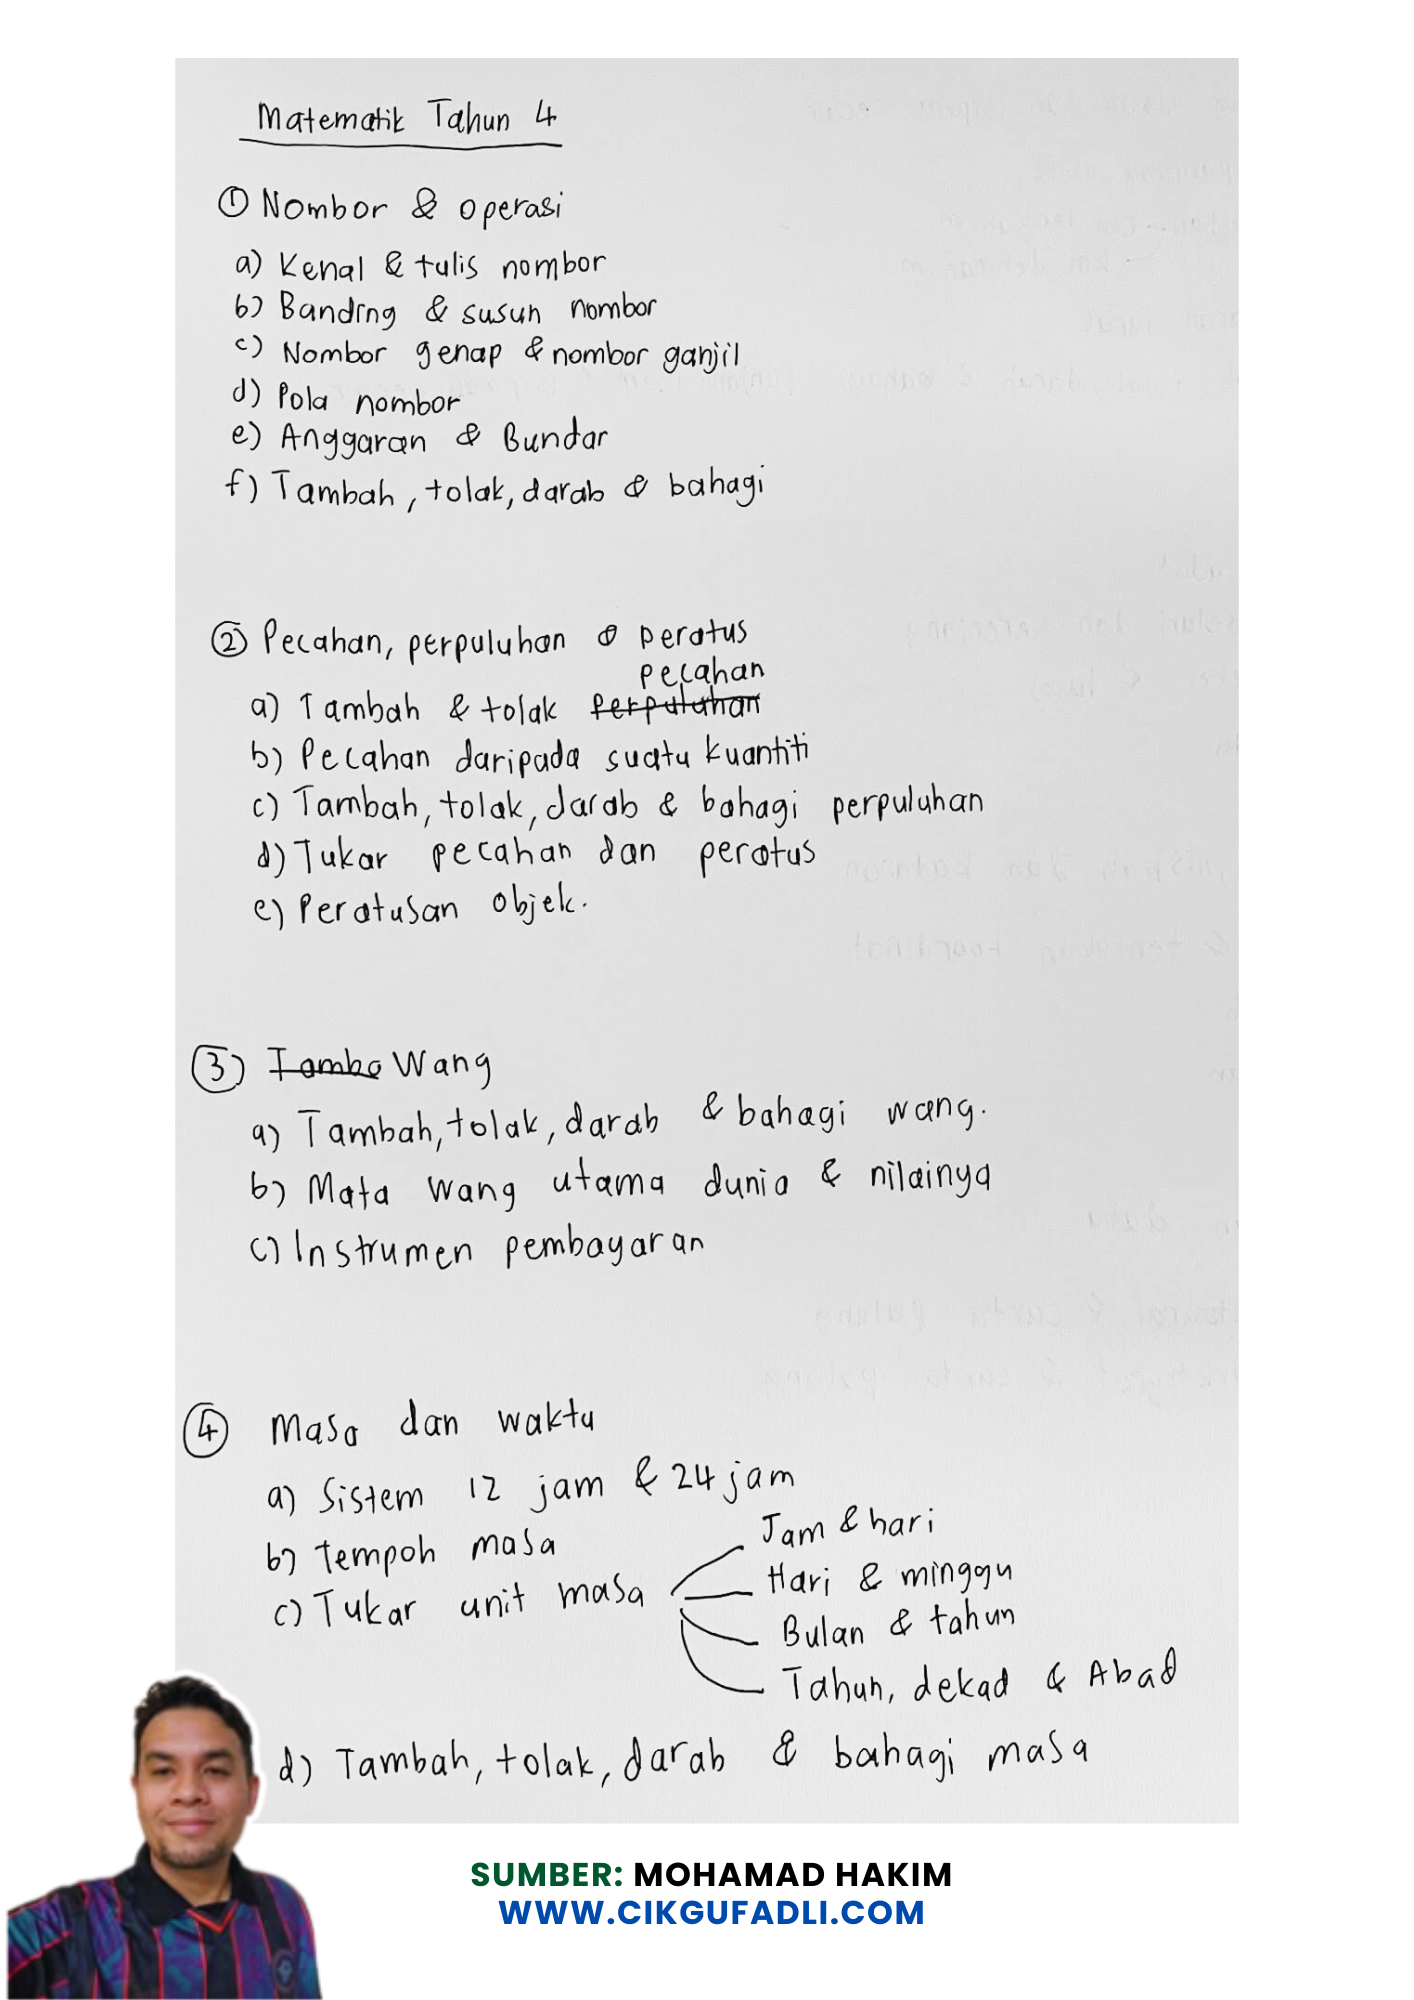 Matematik Tahun 4
① Nombor & operasi
a) Kenal & tulis nombor
b) Banding & susun nombor
c) Nombor genap & nombor ganjil
d) Pola nombor
e) Anggaran & Bundar
f) Tambah, tolak, darab & bahagi
② Pecahan, perpuluhan & peratus
pecahan
a) Tambah & tolak perpuluhan
b) Pecahan daripada suatu kuantiti
c) Tambah, tolak, darab & bahagi perpuluhan
d) Tukar pecahan dan peratus
e) Peratusan objek.
③ Tamba Wang
a) Tambah, tolak, darab & bahagi wang.
b) Mata wang utama dunia & nilainya
c) Instrumen pembayaran
④ Masa dan waktu
a) Sistem 12 jam & 24 jam
b) tempoh masa
c) Tukar unit masa
Jam & hari
Hari & minggu
Bulan & tahun
Tahun, dekad & Abad
d) Tambah, tolak, darab & bahagi masa
SUMBER: MOHAMAD HAKIM
WWW.CIKGUFADLI.COM